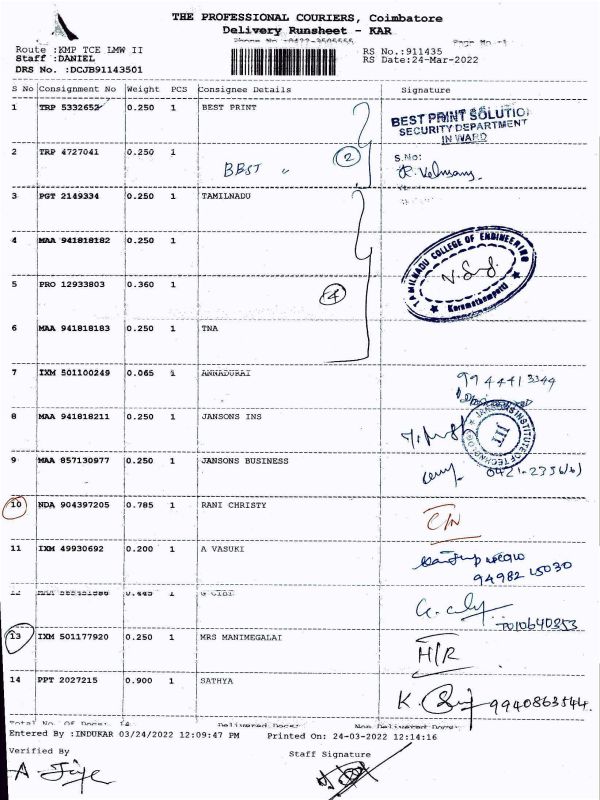 THE PROFESSIONAL COURIERS, Coimbatore
Delivery Runsheet - KAR
Route :KMP TCE LMW II
Staff :DANIEL
DRS No. :DCJB91143501
RS No.:911435
RS Date:24-Mar-2022
S No Consignment No Weight PCS Consignee Details Signature
1 TRP 5332652 0.250 1 BEST PRINT
BEST PRINT SOLUTIO
SECURITY DEPARTMENT
IN WARD
2 TRP 4727041 0.250 1 BEST " 2
S.No:
R. Velusamy.
3 PGT 2149334 0.250 1 TAMILNADU
4 MAA 941818182 0.250 1
TAMILNADU COLLEGE OF ENGINEERING
Karumathampatti
5 PRO 12933803 0.360 1 4
6 MAA 941818183 0.250 1 TNA
7 IXM 501100249 0.065 1 ANNADURAI
99444 13344
8 MAA 941818211 0.250 1 JANSONS INS
JANSONS INSTITUTE OF TECHNOLOGY
JIT
9 MAA 857130977 0.250 1 JANSONS BUSINESS
10 NDA 904397205 0.785 1 RANI CHRISTY
C/N
11 IXM 49930692 0.200 1 A VASUKI
94982 15030
12 0.445 1 G CIBI
7010640353
13 IXM 501177920 0.250 1 MRS MANIMEGALAI
H/R
14 PPT 2027215 0.900 1 SATHYA
K. 9940863544.
Total No. Of Docs: 14 Delivered Docs: Non Delivered Docs:
Entered By :INDUKAR 03/24/2022 12:09:47 PM Printed On: 24-03-2022 12:14:16
Verified By Staff Signature